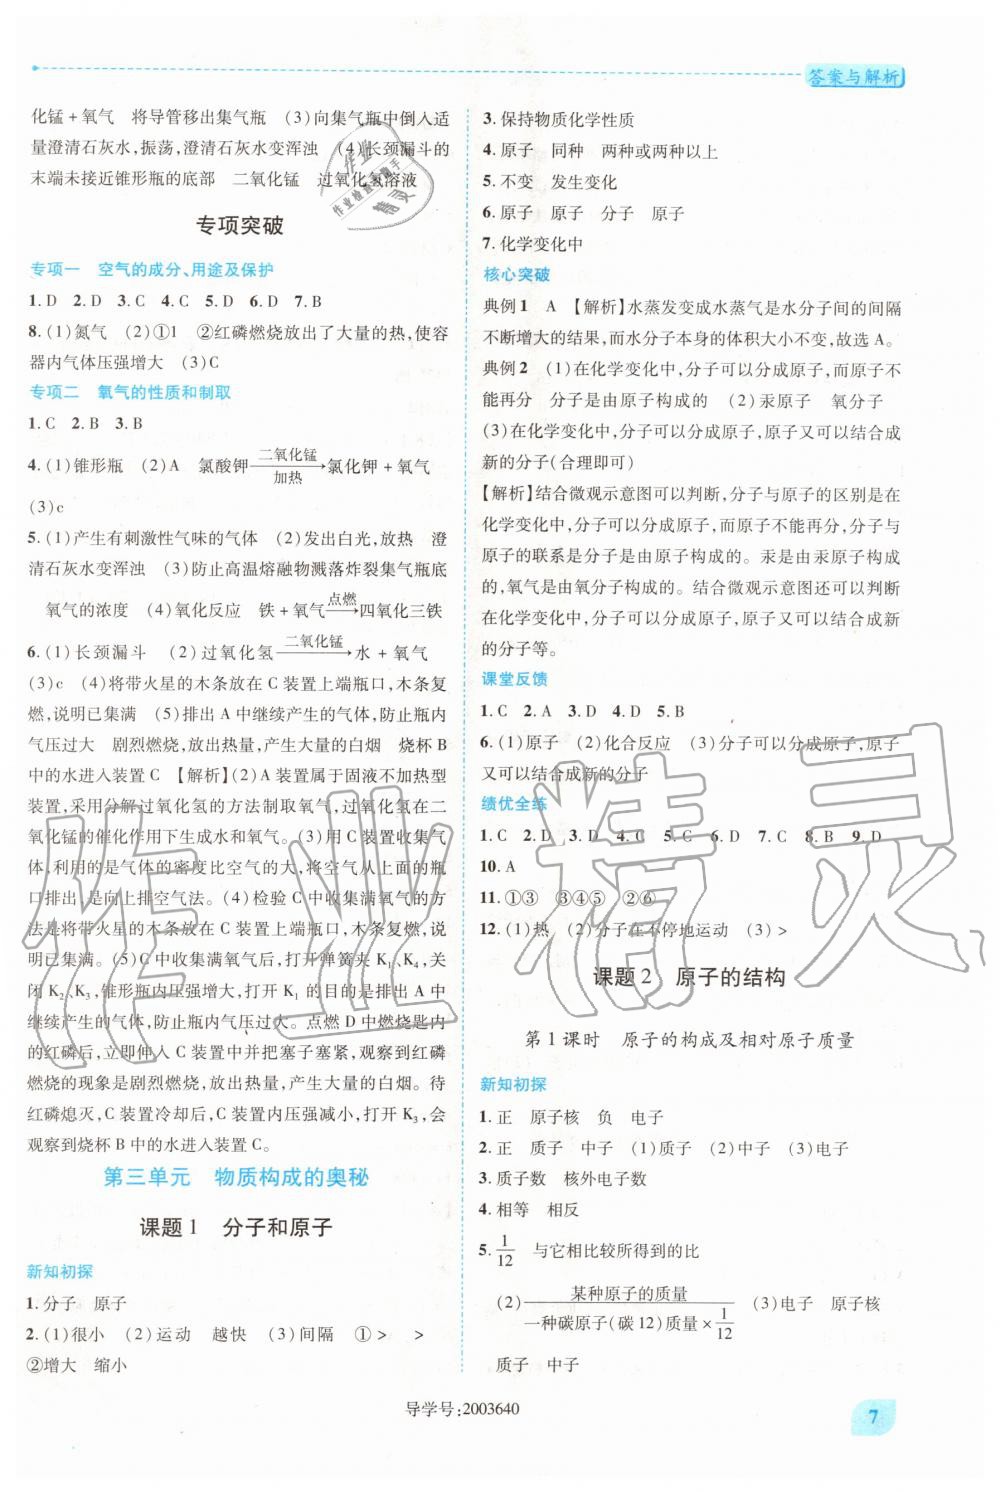 答案与解析
化锰+氧气　将导管移出集气瓶　(3)向集气瓶中倒入适
量澄清石灰水,振荡,澄清石灰水变浑浊　(4)长颈漏斗的
末端未接近锥形瓶的底部　二氧化锰　过氧化氢溶液
专项突破
专项一　空气的成分、用途及保护
1.D　2.D　3.C　4.C　5.D　6.D　7.B
8.(1)氮气　(2)①1　②红磷燃烧放出了大量的热,使容
器内气体压强增大　(3)C
专项二　氧气的性质和制取
1.C　2.B　3.B
4.(1)锥形瓶　(2)A　氯酸钾 二氧化锰 → 加热 氯化钾+氧气
(3)c
5.(1)产生有刺激性气味的气体　(2)发出白光,放热　澄
清石灰水变浑浊　(3)防止高温熔融物溅落炸裂集气瓶底
氧气的浓度　(4)氧化反应　铁+氧气 点燃 → 四氧化三铁
6.(1)长颈漏斗　(2)过氧化氢 二氧化锰 → 水+氧气
(3)c　(4)将带火星的木条放在C装置上端瓶口,木条复
燃,说明已集满　(5)排出A中继续产生的气体,防止瓶内
气压过大　剧烈燃烧,放出热量,产生大量的白烟　烧杯B
中的水进入装置C　【解析】(2)A装置属于固液不加热型
装置,采用分解过氧化氢的方法制取氧气,过氧化氢在二
氧化锰的催化作用下生成水和氧气。(3)用C装置收集气
体,利用的是气体的密度比空气的大,将空气从上面的瓶
口排出,是向上排空气法。(4)检验C中收集满氧气的方
法是将带火星的木条放在C装置上端瓶口,木条复燃,
说明已集满。(5)C中收集满氧气后,打开弹簧夹K₃,关闭
K₂、K₃,锥形瓶内压强增大,打开K₁的目的是排出A中
继续产生的气体,防止瓶内气压过大。点燃D中燃烧匙内
的红磷后,立即伸入C装置中并把塞子塞紧,观察到红磷
燃烧的现象是剧烈燃烧,放出热量,产生大量的白烟。待
红磷熄灭,C装置冷却后,C装置内压强减小,打开K₃,会
观察到烧杯B中的水进入装置C。
第三单元　物质构成的奥秘
课题1　分子和原子
新知初探
1.分子　原子
2.(1)很小　(2)运动　越快　(3)间隔　①>　>
②增大　缩小
3.保持物质化学性质
4.原子　同种　两种或两种以上
5.不变　发生变化
6.原子　原子　分子　原子
7.化学变化中
核心突破
典例1　A　【解析】水蒸发变成水蒸气是水分子间的间隔
不断增大的结果,而水分子本身的体积大小不变,故选A。
典例2　(1)在化学变化中,分子可以分成原子,而原子不
能再分　分子是由原子构成的　(2)汞原子　氧分子
(3)在化学变化中,分子可以分成原子,原子又可以结合成
新的分子(合理即可)
【解析】结合微观示意图可以判断,分子与原子的区别是在
化学变化中,分子可以分成原子,而原子不能再分,分子与
原子的联系是分子是由原子构成的。汞是由汞原子构成
的,氧气是由氧分子构成的。结合微观示意图还可以判断
在化学变化中,分子可以分成原子,原子又可以结合成新
的分子等。
课堂反馈
1.C　2.A　3.D　4.D　5.B
6.(1)原子　(2)化合反应　(3)分子可以分成原子,原子
又可以结合成新的分子
绩优全练
1.C　2.D　3.D　4.C　5.C　6.D　7.C　8.B　9.D
10.A
11.①③　③④⑤　②⑥
12.(1)热　(2)分子在不停地运动　(3)>
课题2　原子的结构
第1课时　原子的构成及相对原子质量
新知初探
1.正　原子核　负　电子
2.正　质子　中子　(1)质子　(2)中子　(3)电子
3.质子数　核外电子数
4.相等　相反
5. 1/12　与它相比较所得到的比
(2) 某种原子的质量 / 一种碳原子(碳12)质量×1/12　(3)电子　原子核
质子　中子
导学号:2003640
7
作业精灵
作业检查小助手
精灵